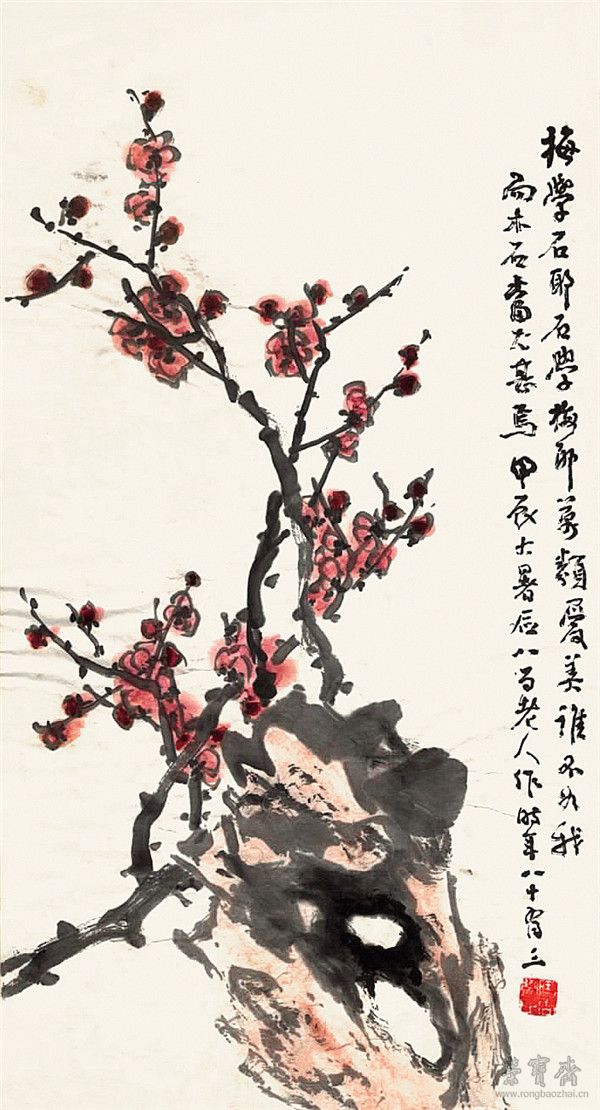 梅学石耶石学梅耶万类爱美谁不如我
而木石奮尤甚焉甲辰大暑后八日老人作时年八十有三
榮寶齋
www.rongbaozhai.cn